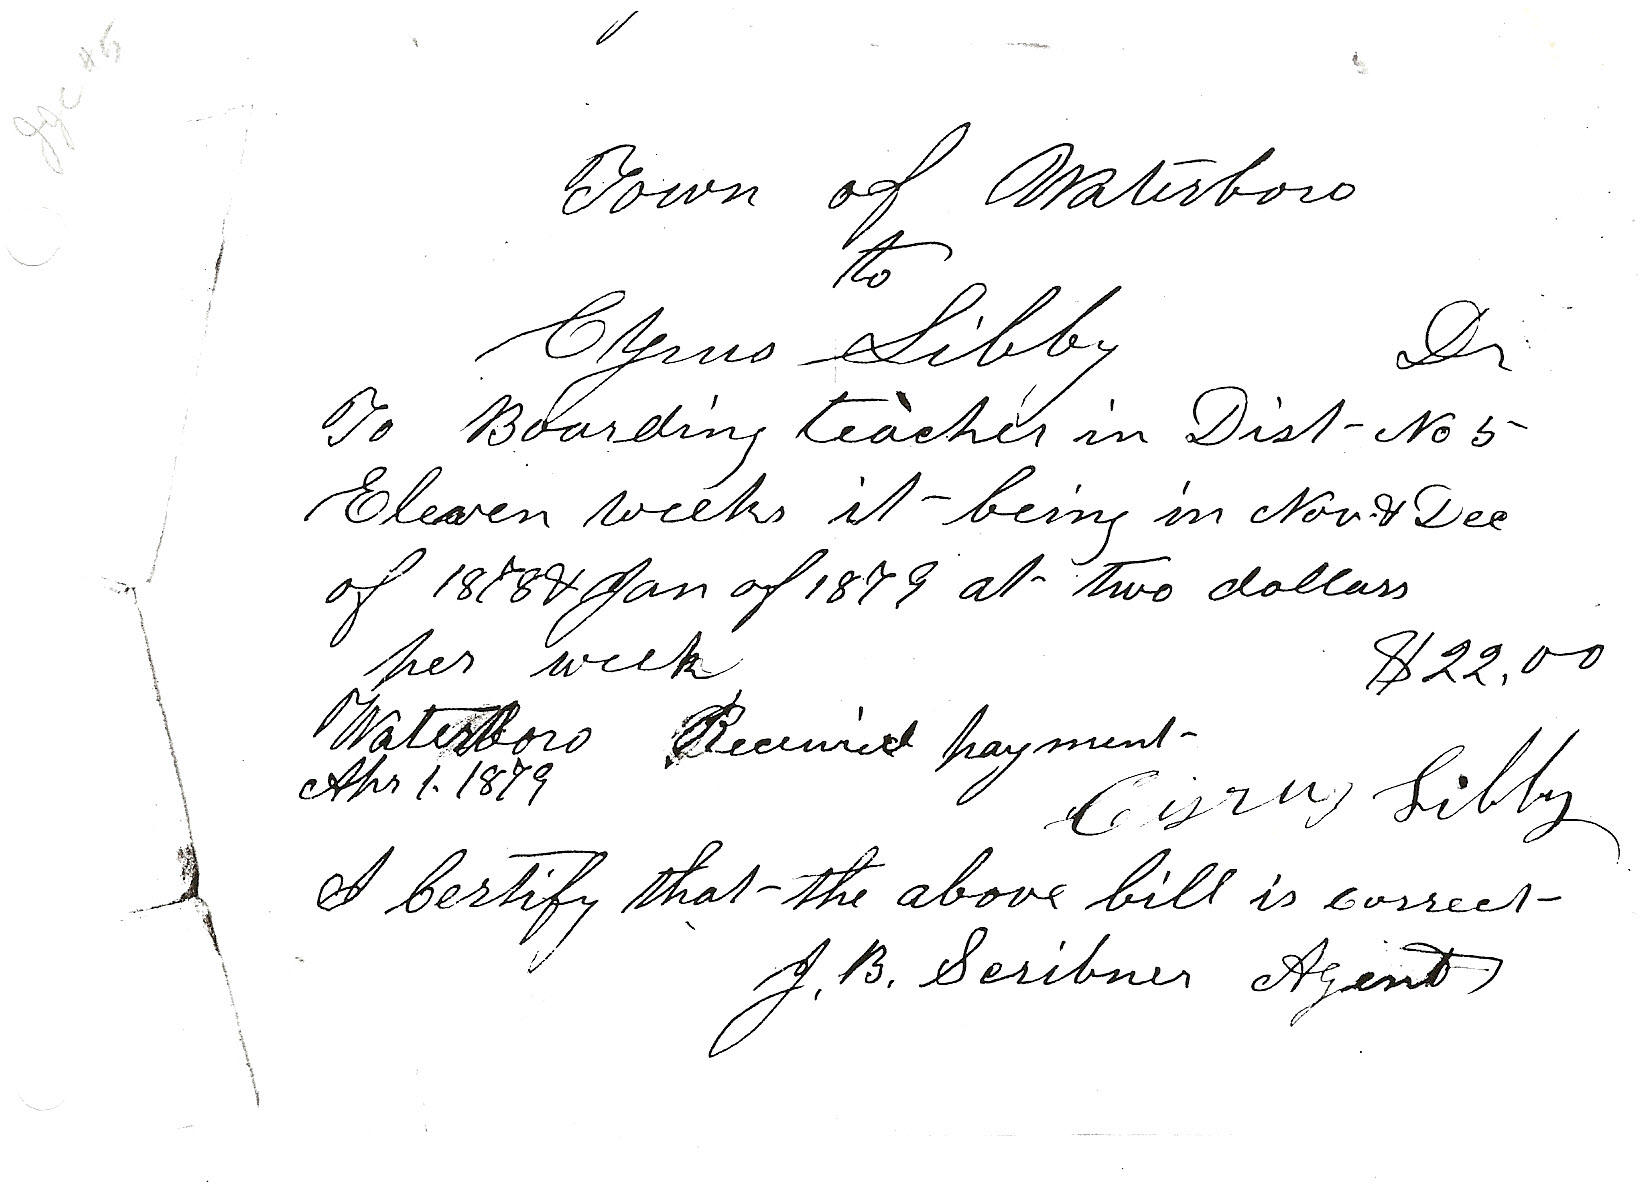 Town of Waterboro
to
Cyrus Libby Dr
To Boarding teacher in Dist No 5
Eleven weeks it being in Nov & Dec
of 1878 & Jan of 1879 at two dollars
per week $22,00
Waterboro Received payment
Apr 1. 1879
Cyrus Libby
I Certify that the above bill is correct
J. B. Scribner Agent